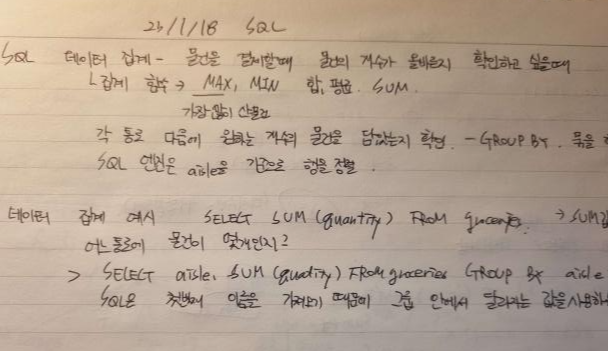 23/1/18 SQL
SQL 데이터 집계 - 물건을 결제할때 물건의 개수가 올바른지 확인하고 싶을때
ㄴ집계 함수 → MAX, MIN 합, 평균. SUM.
가장 많이 산물건
각 통로 다음에 원하는 개수의 물건을 담았는지 확인. - GROUP BY. 묶을
SQL 엔진은 aisle을 기준으로 행을 정렬.
데이터 집계 예시 SELECT SUM(quantity) FROM groceries. → SUM
어느 통로에 물건이 몇개인지?
> SELECT aisle, SUM(quantity) FROM groceries GROUP BY aisle
SQL은 첫번째 이름을 가져오기 때문에 그룹 안에서 달라지는 값을 사용하